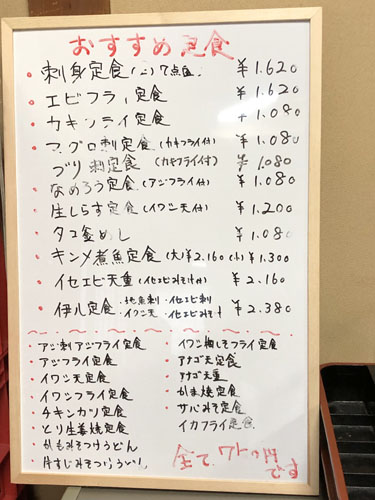 おすすめ定食
刺身定食(二)7点盛 ¥1.620
エビフライ定食 ¥1.620
カキフライ定食 ¥1.080
マグロ刺定食(カキフライ付) ¥1.080
ブリ刺定食(カキフライ付) ¥1.080
なめろう定食(アジフライ付) ¥1.080
生しらす定食(イワシ天付) ¥1.200
タコ釜めし ¥1.080
キンメ煮魚定食(大)¥2.160(小)¥1.300
イセエビ天重(イセエビみそ汁付) ¥2.160
伊ル定食・地魚刺・イセエビ刺・イワシ天・イセエビみそ汁 ¥2.380
アジ刺アジフライ定食
アジフライ定食
イワシ天定食
イワシフライ定食
チキンカツ定食
とり生姜焼定食
かもみそつけうどん
牛すじみそつけうどん
イワシ梅しそフライ定食
アナゴ天定食
アナゴ天重
かま焼定食
サバみそ定食
イカフライ定食
全て
円です